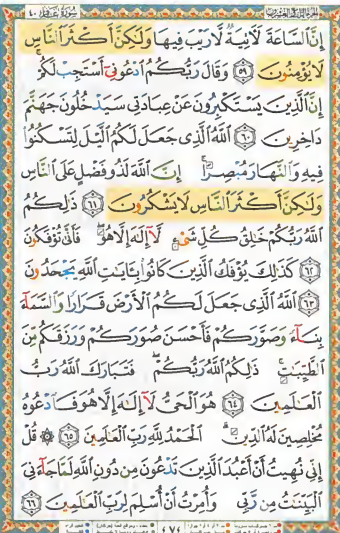 سُورَةُ غَافِرٍ ٤٠
إِنَّ السَّاعَةَ لَآتِيَةٌ لَّا رَيْبَ فِيهَا وَلَٰكِنَّ أَكْثَرَ النَّاسِ
لَا يُؤْمِنُونَ ٥٩ وَقَالَ رَبُّكُمُ ادْعُونِي أَسْتَجِبْ لَكُمْ ۚ
إِنَّ الَّذِينَ يَسْتَكْبِرُونَ عَنْ عِبَادَتِي سَيَدْخُلُونَ جَهَنَّمَ
دَاخِرِينَ ٦٠ اللَّهُ الَّذِي جَعَلَ لَكُمُ اللَّيْلَ لِتَسْكُنُوا
فِيهِ وَالنَّهَارَ مُبْصِرًا ۚ إِنَّ اللَّهَ لَذُو فَضْلٍ عَلَى النَّاسِ
وَلَٰكِنَّ أَكْثَرَ النَّاسِ لَا يَشْكُرُونَ ٦١ ذَٰلِكُمُ
اللَّهُ رَبُّكُمْ خَالِقُ كُلِّ شَيْءٍ لَّا إِلَٰهَ إِلَّا هُوَ ۖ فَأَنَّىٰ تُؤْفَكُونَ
٦٢ كَذَٰلِكَ يُؤْفَكُ الَّذِينَ كَانُوا بِآيَاتِ اللَّهِ يَجْحَدُونَ
٦٣ اللَّهُ الَّذِي جَعَلَ لَكُمُ الْأَرْضَ قَرَارًا وَالسَّمَاءَ
بِنَاءً وَصَوَّرَكُمْ فَأَحْسَنَ صُوَرَكُمْ وَرَزَقَكُم مِّنَ
الطَّيِّبَاتِ ۚ ذَٰلِكُمُ اللَّهُ رَبُّكُمْ ۖ فَتَبَارَكَ اللَّهُ رَبُّ
الْعَالَمِينَ ٦٤ هُوَ الْحَيُّ لَا إِلَٰهَ إِلَّا هُوَ فَادْعُوهُ
مُخْلِصِينَ لَهُ الدِّينَ ۗ الْحَمْدُ لِلَّهِ رَبِّ الْعَالَمِينَ ٦٥ ۞ قُلْ
إِنِّي نُهِيتُ أَنْ أَعْبُدَ الَّذِينَ تَدْعُونَ مِن دُونِ اللَّهِ لَمَّا جَاءَنِيَ
الْبَيِّنَاتُ مِن رَّبِّي وَأُمِرْتُ أَنْ أُسْلِمَ لِرَبِّ الْعَالَمِينَ ٦٦
٤٧٤